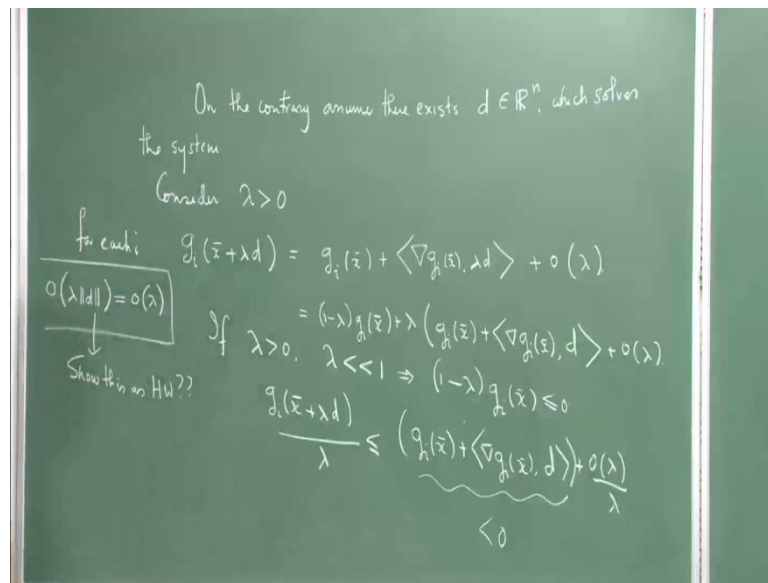 On the contrary assume there exists d ∈ ℝⁿ, which solves
the system
Consider λ > 0
for each i
g_i(x̄ + λd) = g_i(x̄) + ⟨∇g_i(x̄), λd⟩ + o(λ)
o(λ‖d‖) = o(λ)
= (1-λ) g_i(x̄) + λ(g_i(x̄) + ⟨∇g_i(x̄), d⟩ + o(λ)
Show this as HW??
If λ > 0, λ << 1 ⇒ (1-λ) g_i(x̄) ≤ 0
g_i(x̄ + λd)/λ ≤ (g_i(x̄) + ⟨∇g_i(x̄), d⟩) + o(λ)/λ
< 0